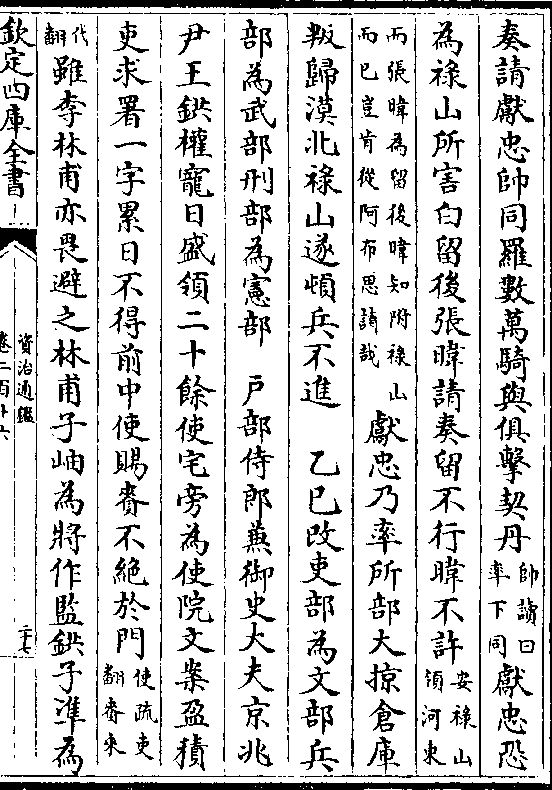 奏請獻忠帥同羅數萬騎與俱擊契丹帥讀曰率下同獻忠恐
為祿山所害白留後張暐請奏留不行暐不許安祿山領河東
而張暐為留後暐知附祿山而已豈肯從阿布思請哉獻忠乃率所部大掠倉庫
叛歸漠北祿山遂頓兵不進　乙巳改吏部為文部兵
部為武部刑部為憲部　戶部侍郎兼御史大夫京兆
尹王鉷權寵日盛領二十餘使宅旁為使院文案盈積
吏求署一字累日不得前中使賜賚不絕於門使疏吏翻賚來
代翻雖李林甫亦畏避之林甫子岫為將作監鉷子準為
欽定四庫全書
資治通鑑
卷二百十六
二十七